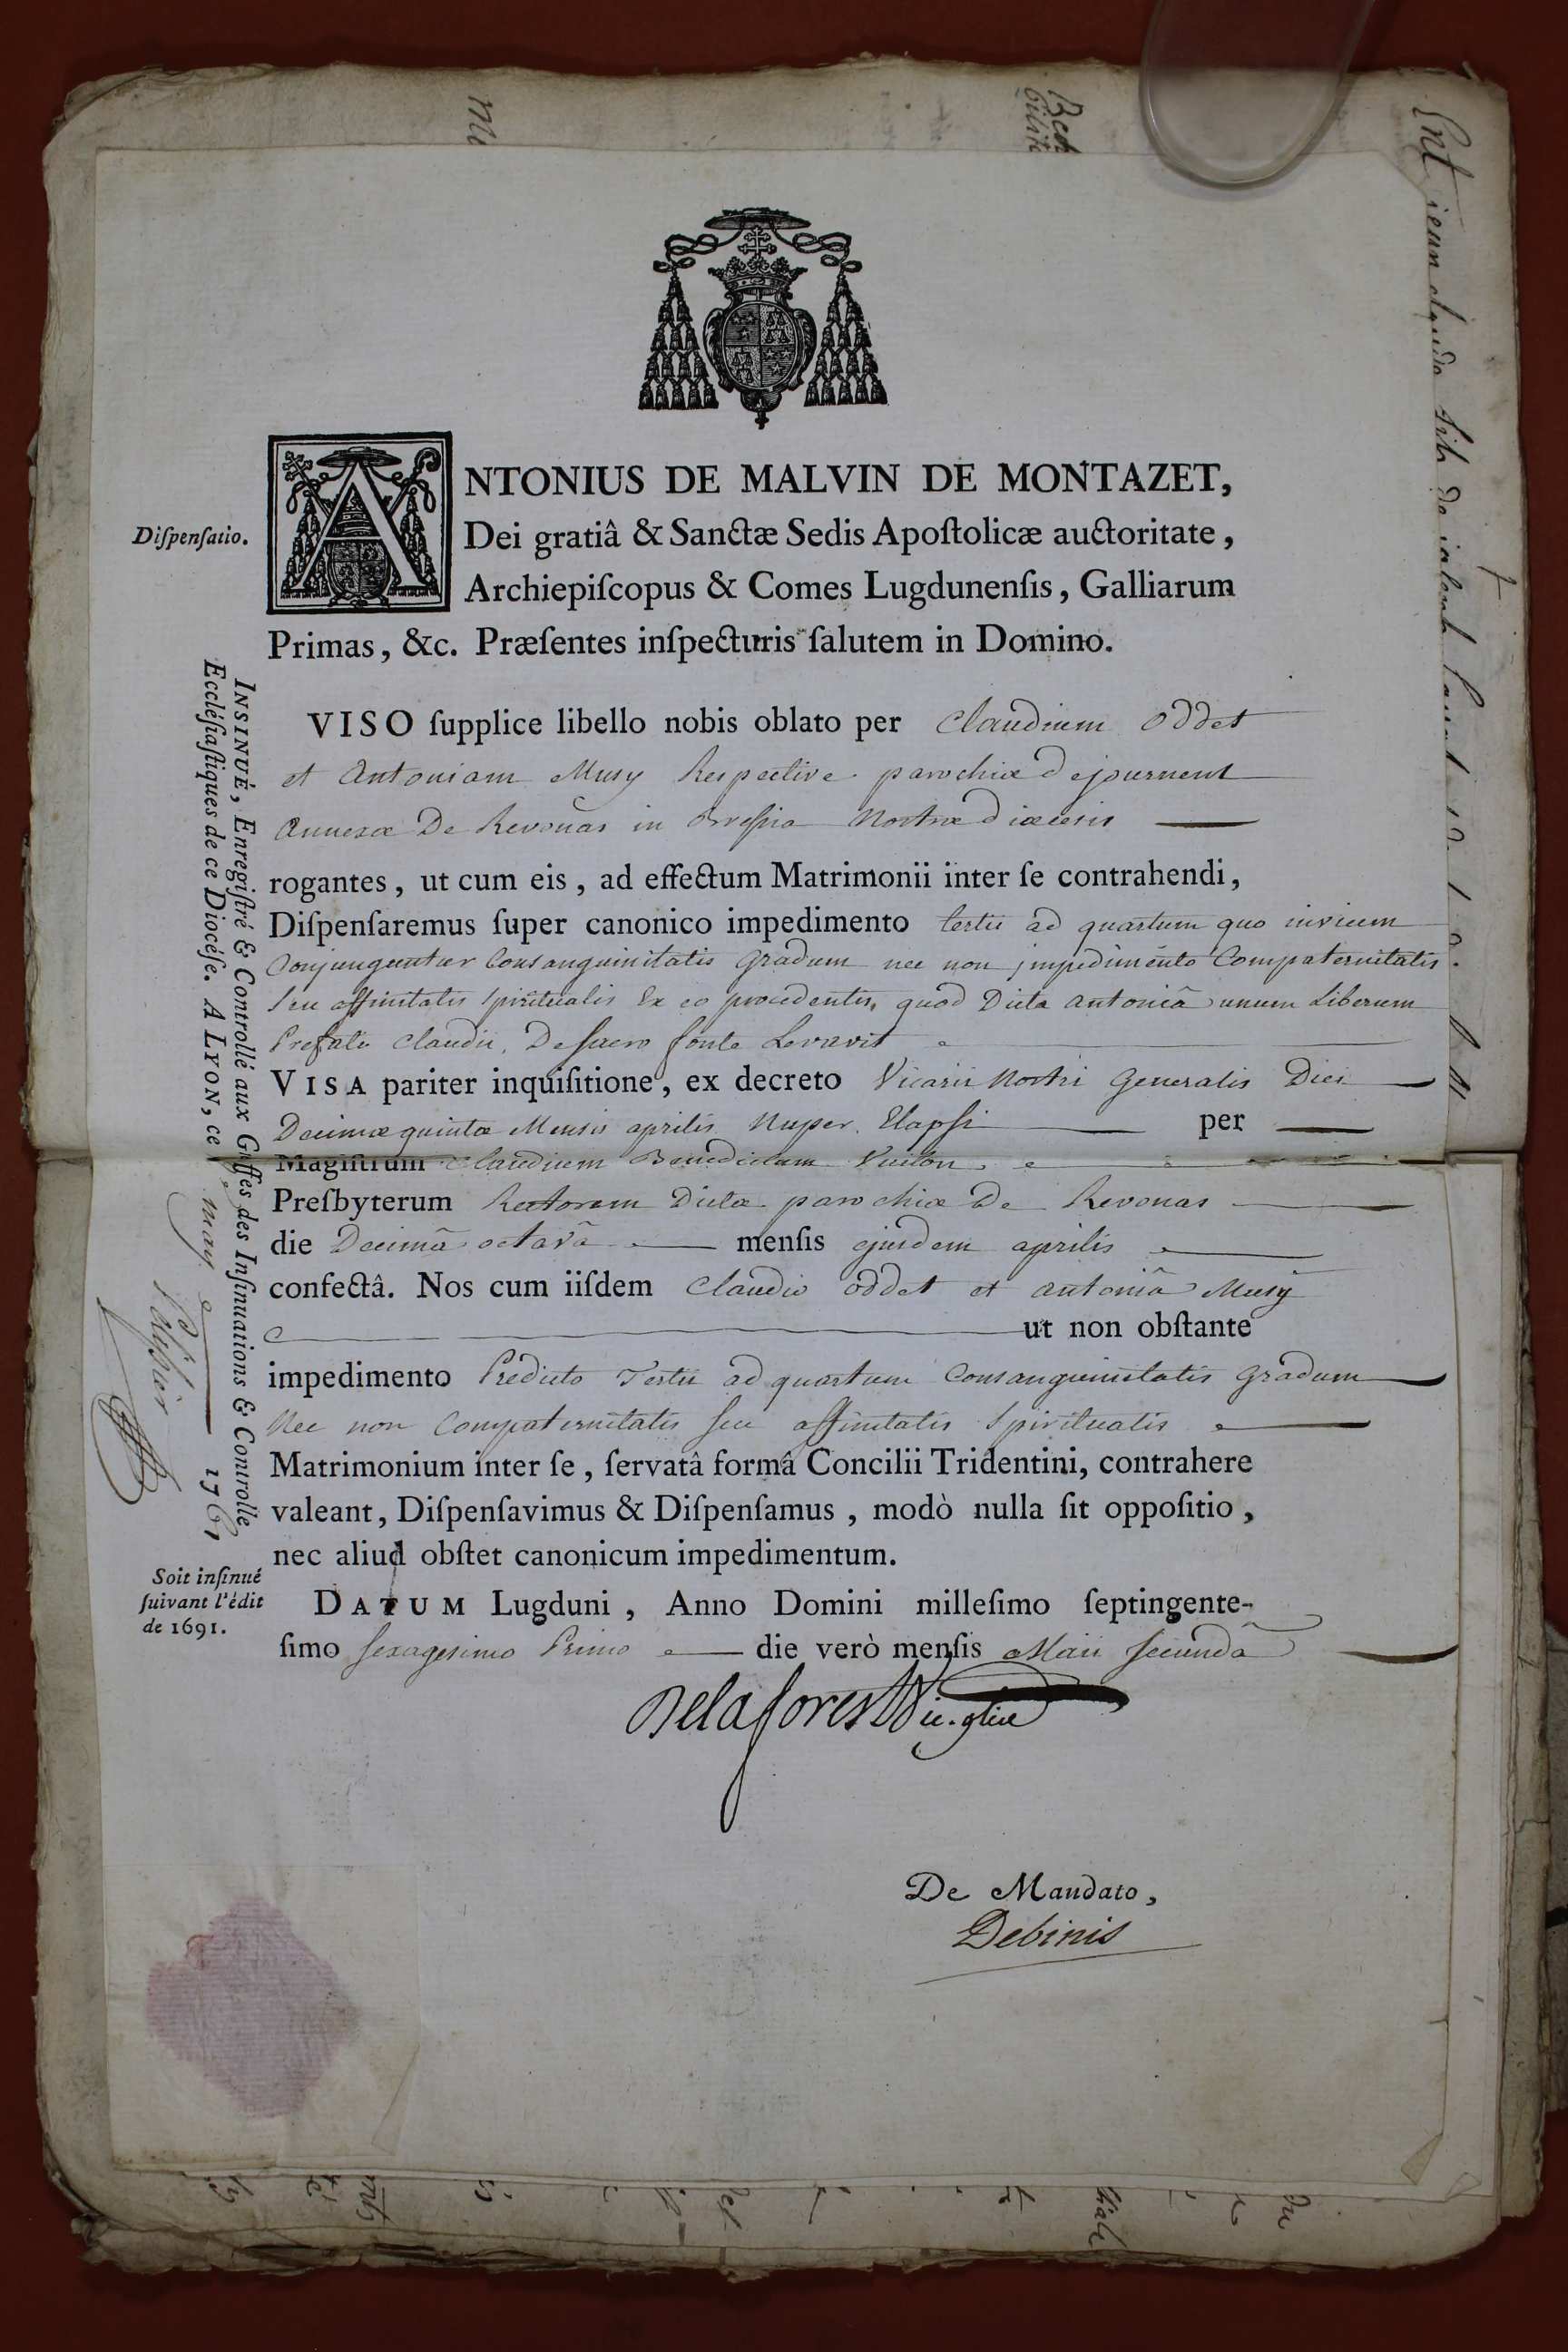 Diſpenſatio.
ANTONIUS DE MALVIN DE MONTAZET,
Dei gratiâ & Sanctæ Sedis Apoſtolicæ auctoritate,
Archiepiſcopus & Comes Lugdunenſis, Galliarum
Primas, &c. Præſentes inſpecturis ſalutem in Domino.
VISO ſupplice libello nobis oblato per Claudium Oddet
et Antoniam Musy Respective parochiæ de journent
Annexæ De Revonas in Bressia Nostræ diœcesis
rogantes, ut cum eis, ad effectum Matrimonii inter ſe contrahendi,
Diſpenſaremus ſuper canonico impedimento tertii ad quartum quo invicem
Conjunguntur Consanguinitatis Gradum nec non impedimento Compaternitatis
Seu affinitatis Spiritualis Ex eo procedentis, quod Dicta Antonia unum Liberum
Prefati Claudii, De Sacro fonte Levavit
VISA pariter inquiſitione, ex decreto Vicarii Nostri Generalis Diei
Decimæ quintæ Mensis aprilis Nuper Elapsi per
Magiſtrum Claudium Benedictum Vuiton
Preſbyterum Rectorem Dictæ parochiæ De Revonas
die Decimâ octavâ menſis ejusdem aprilis
confectâ. Nos cum iiſdem Claudio Oddet et antoniâ Musy
ut non obſtante
impedimento Predicto Tertii ad quartum Consanguinitatis Gradum
Nec non Compaternitatis seu affinitatis Spiritualis
Matrimonium inter ſe, ſervatâ formâ Concilii Tridentini, contrahere
valeant, Diſpenſavimus & Diſpenſamus, modò nulla ſit oppoſitio,
nec aliud obſtet canonicum impedimentum.
DATUM Lugduni, Anno Domini milleſimo ſeptingente-
ſimo sexagesimo Primo die verò menſis Maii secundâ
Delaforest Vic. gñal
De Mandato,
Debinis
INSINUÉ, Enregiſtré & Controllé aux Greffes des Inſinuations & Controlle
Eccléſiaſtiques de ce Diocéſe. A LYON, ce may 1761
Soit inſinué
ſuivant l'édit
de 1691.